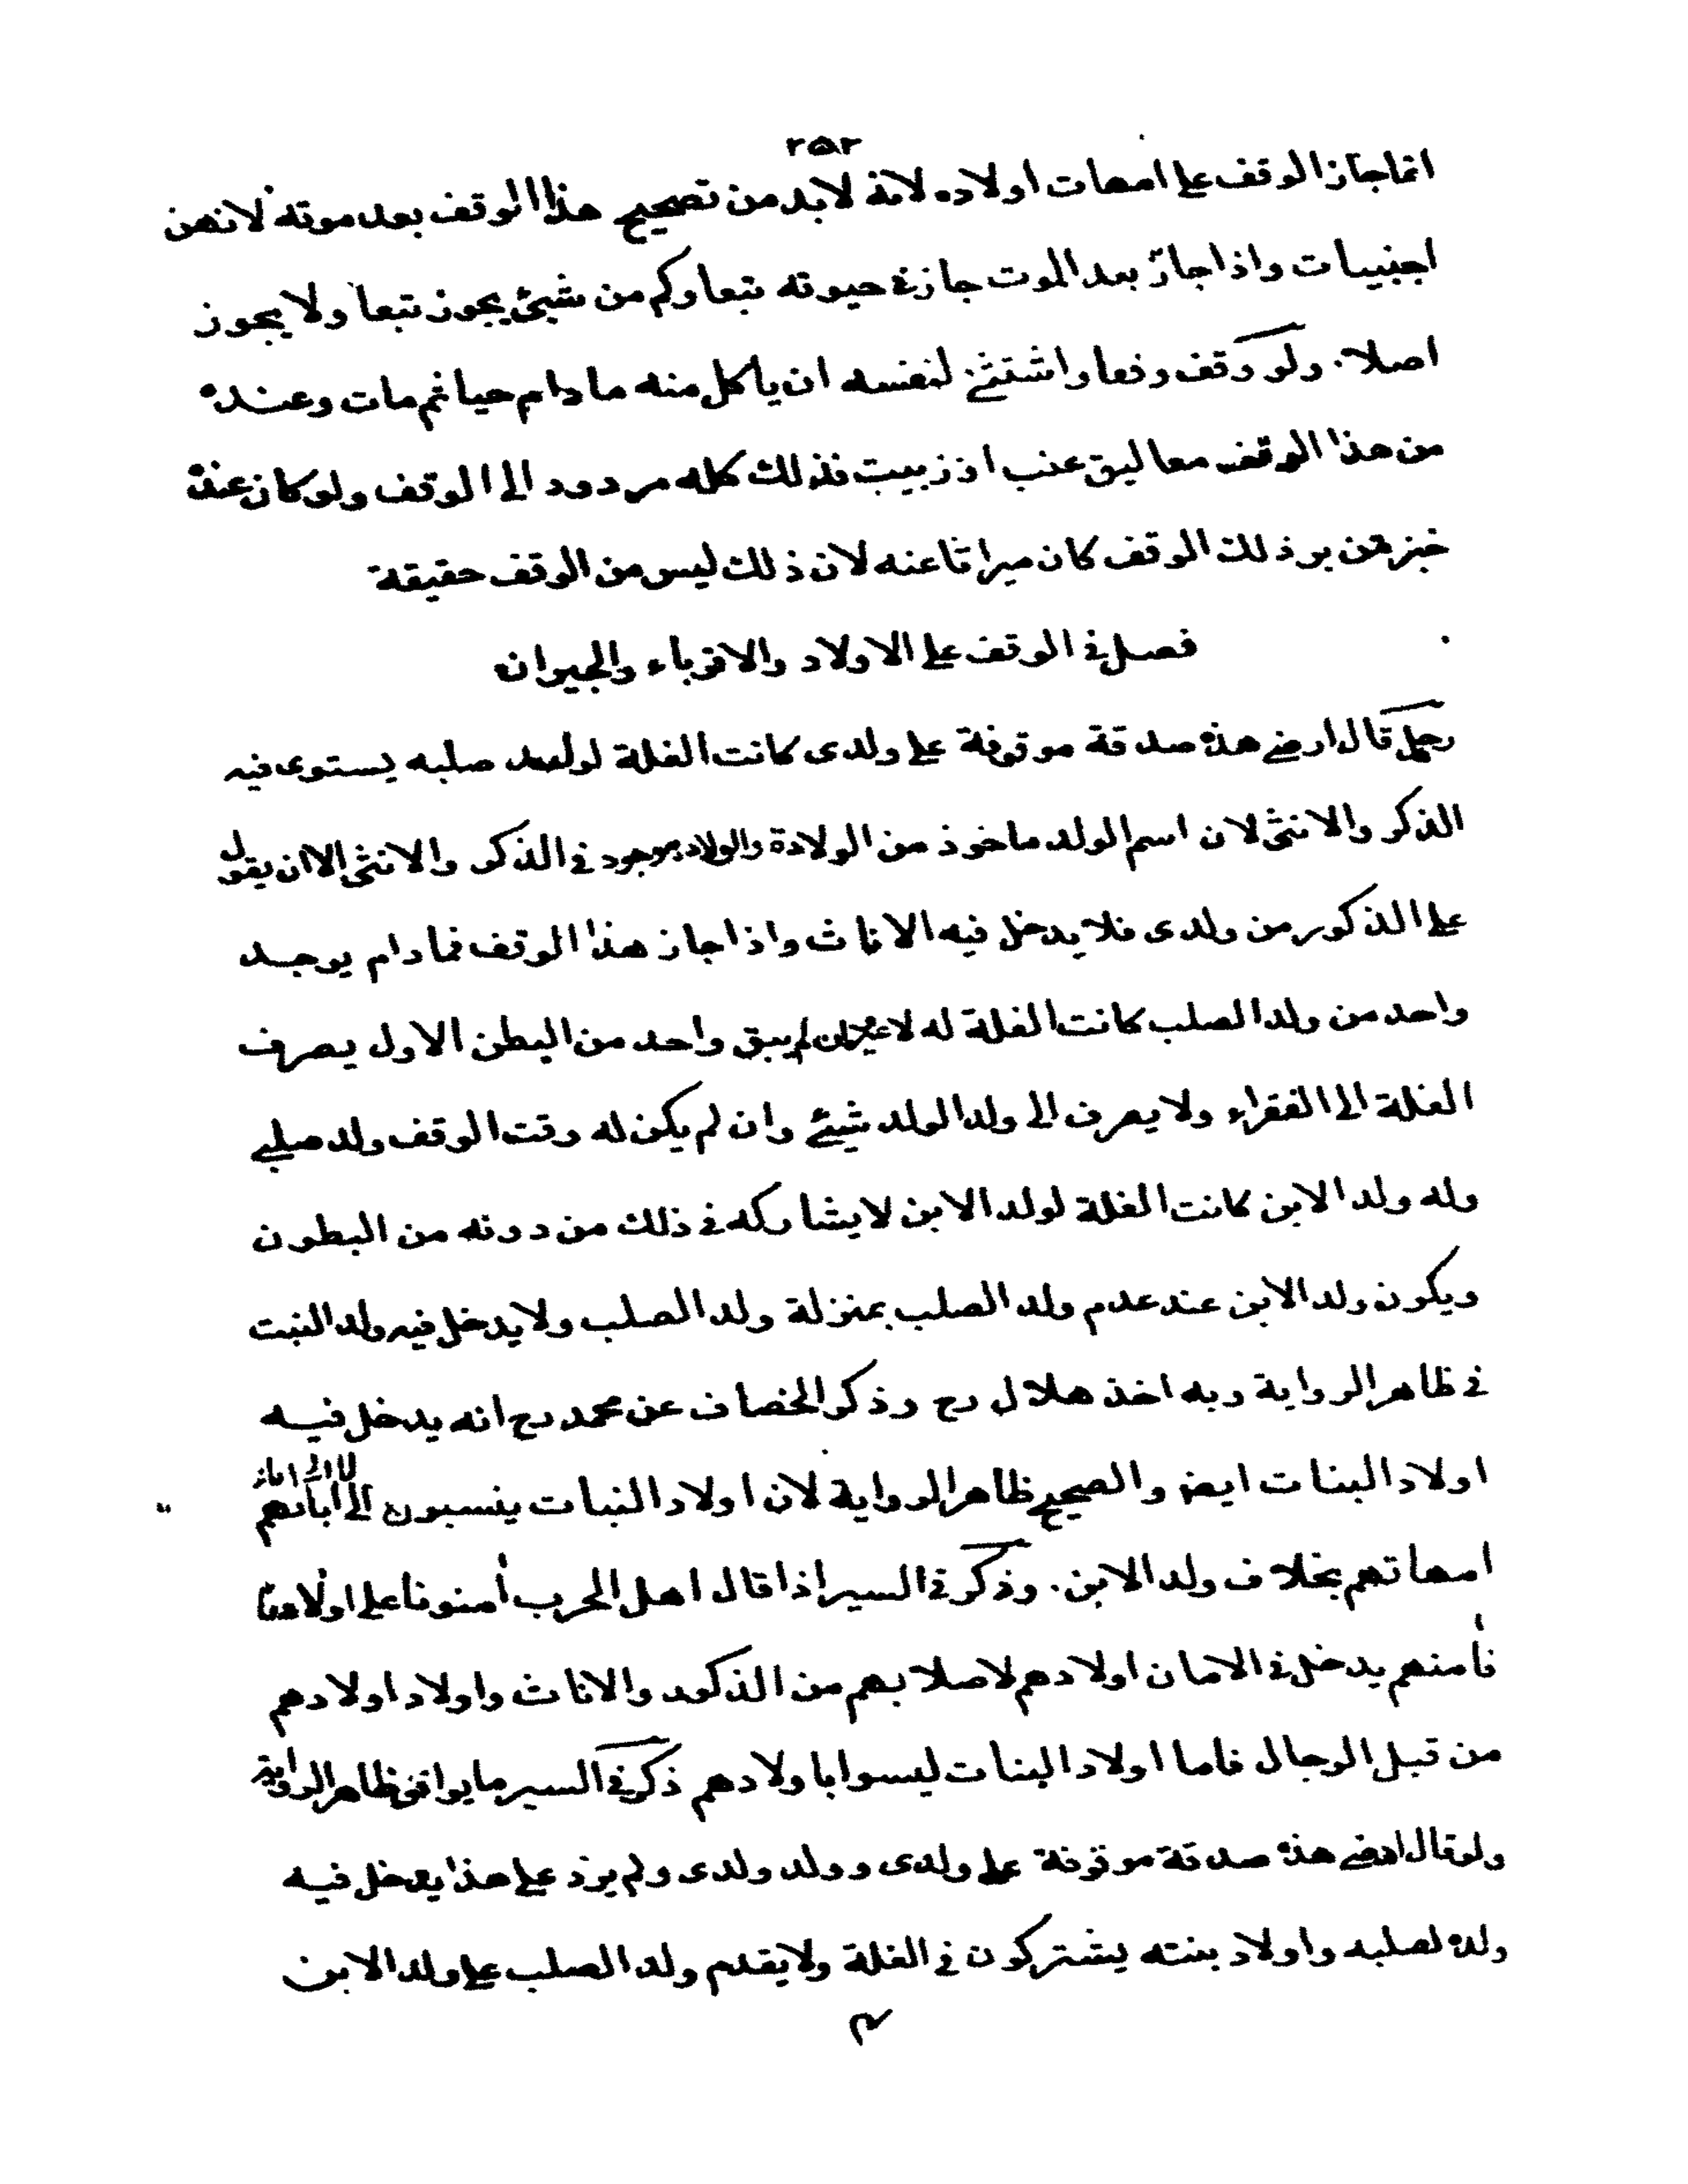 ٢٥٢
انما جاز الوقف على امهات اولاده لانه لا بد من تصحيح هذا الوقف بعد موته لانهن
اجنبيات واذا جاز بعد الموت جاز في حيوته تبعا وكم من شيئ يجوز تبعا ولا يجوز
اصلا. ولو وقف وقفا واشتثنى لنفسه ان ياكل منه ما دام حيا ثم مات وعنده
من هذا الوقف معاليق عنب او زبيب فذلك كله مردود الى الوقف ولو كان عنده
خبز من بر ذلك الوقف كان ميراثا عنه لان ذلك ليس من الوقف حقيقة
فصل في الوقف على الاولاد والاقرباء والجيران
رجل قال ارضي هذه صدقة موقوفة على ولدى كانت الغلة لولد صلبه يستوى فيه
الذكر والانثى لان اسم الولد ماخوذ من الولادة والولاد موجود في الذكر والانثى الا ان يقول
على الذكور من ولدى فلا يدخل فيه الاناث واذا جاز هذا الوقف فما دام يوجد
واحد من ولد الصلب كانت الغلة له لا غير ان لم يبق واحد من البطن الاول يصرف
الغلة الى الفقراء ولا يصرف الى ولد الولد شيئ وان لم يكن له وقت الوقف ولد صلبي
وله ولد الابن كانت الغلة لولد الابن لا يشاركه في ذلك من دونه من البطون
ويكون ولد الابن عند عدم ولد الصلب بمنزلة ولد الصلب ولا يدخل فيه ولد البنت
في ظاهر الرواية وبه اخذ هلال رح وذكر الخصاف عن محمد رح انه يدخل فيه
اولاد البنات ايض والصحيح ظاهر الرواية لان اولاد البنات ينسبون الى ابائهم لا الى
امهاتهم بخلاف ولد الابن. وذكر في السير اذا قال اهل الحرب أمنونا على اولادنا
فأمنهم يدخل في الامان اولادهم لاصلابهم من الذكور والاناث واولاد اولادهم
من قبل الرجال فاما اولاد البنات ليسوا باولادهم ذكر في السير ما يوافق ظاهر الرواية
ولو قال ارضي هذه صدقة موقوفة على ولدى وولد ولدى ولم يزد على هذا يدخل فيه
ولده لصلبه واولاد بنته يشتركون في الغلة ولا يقدم ولد الصلب على ولد الابن